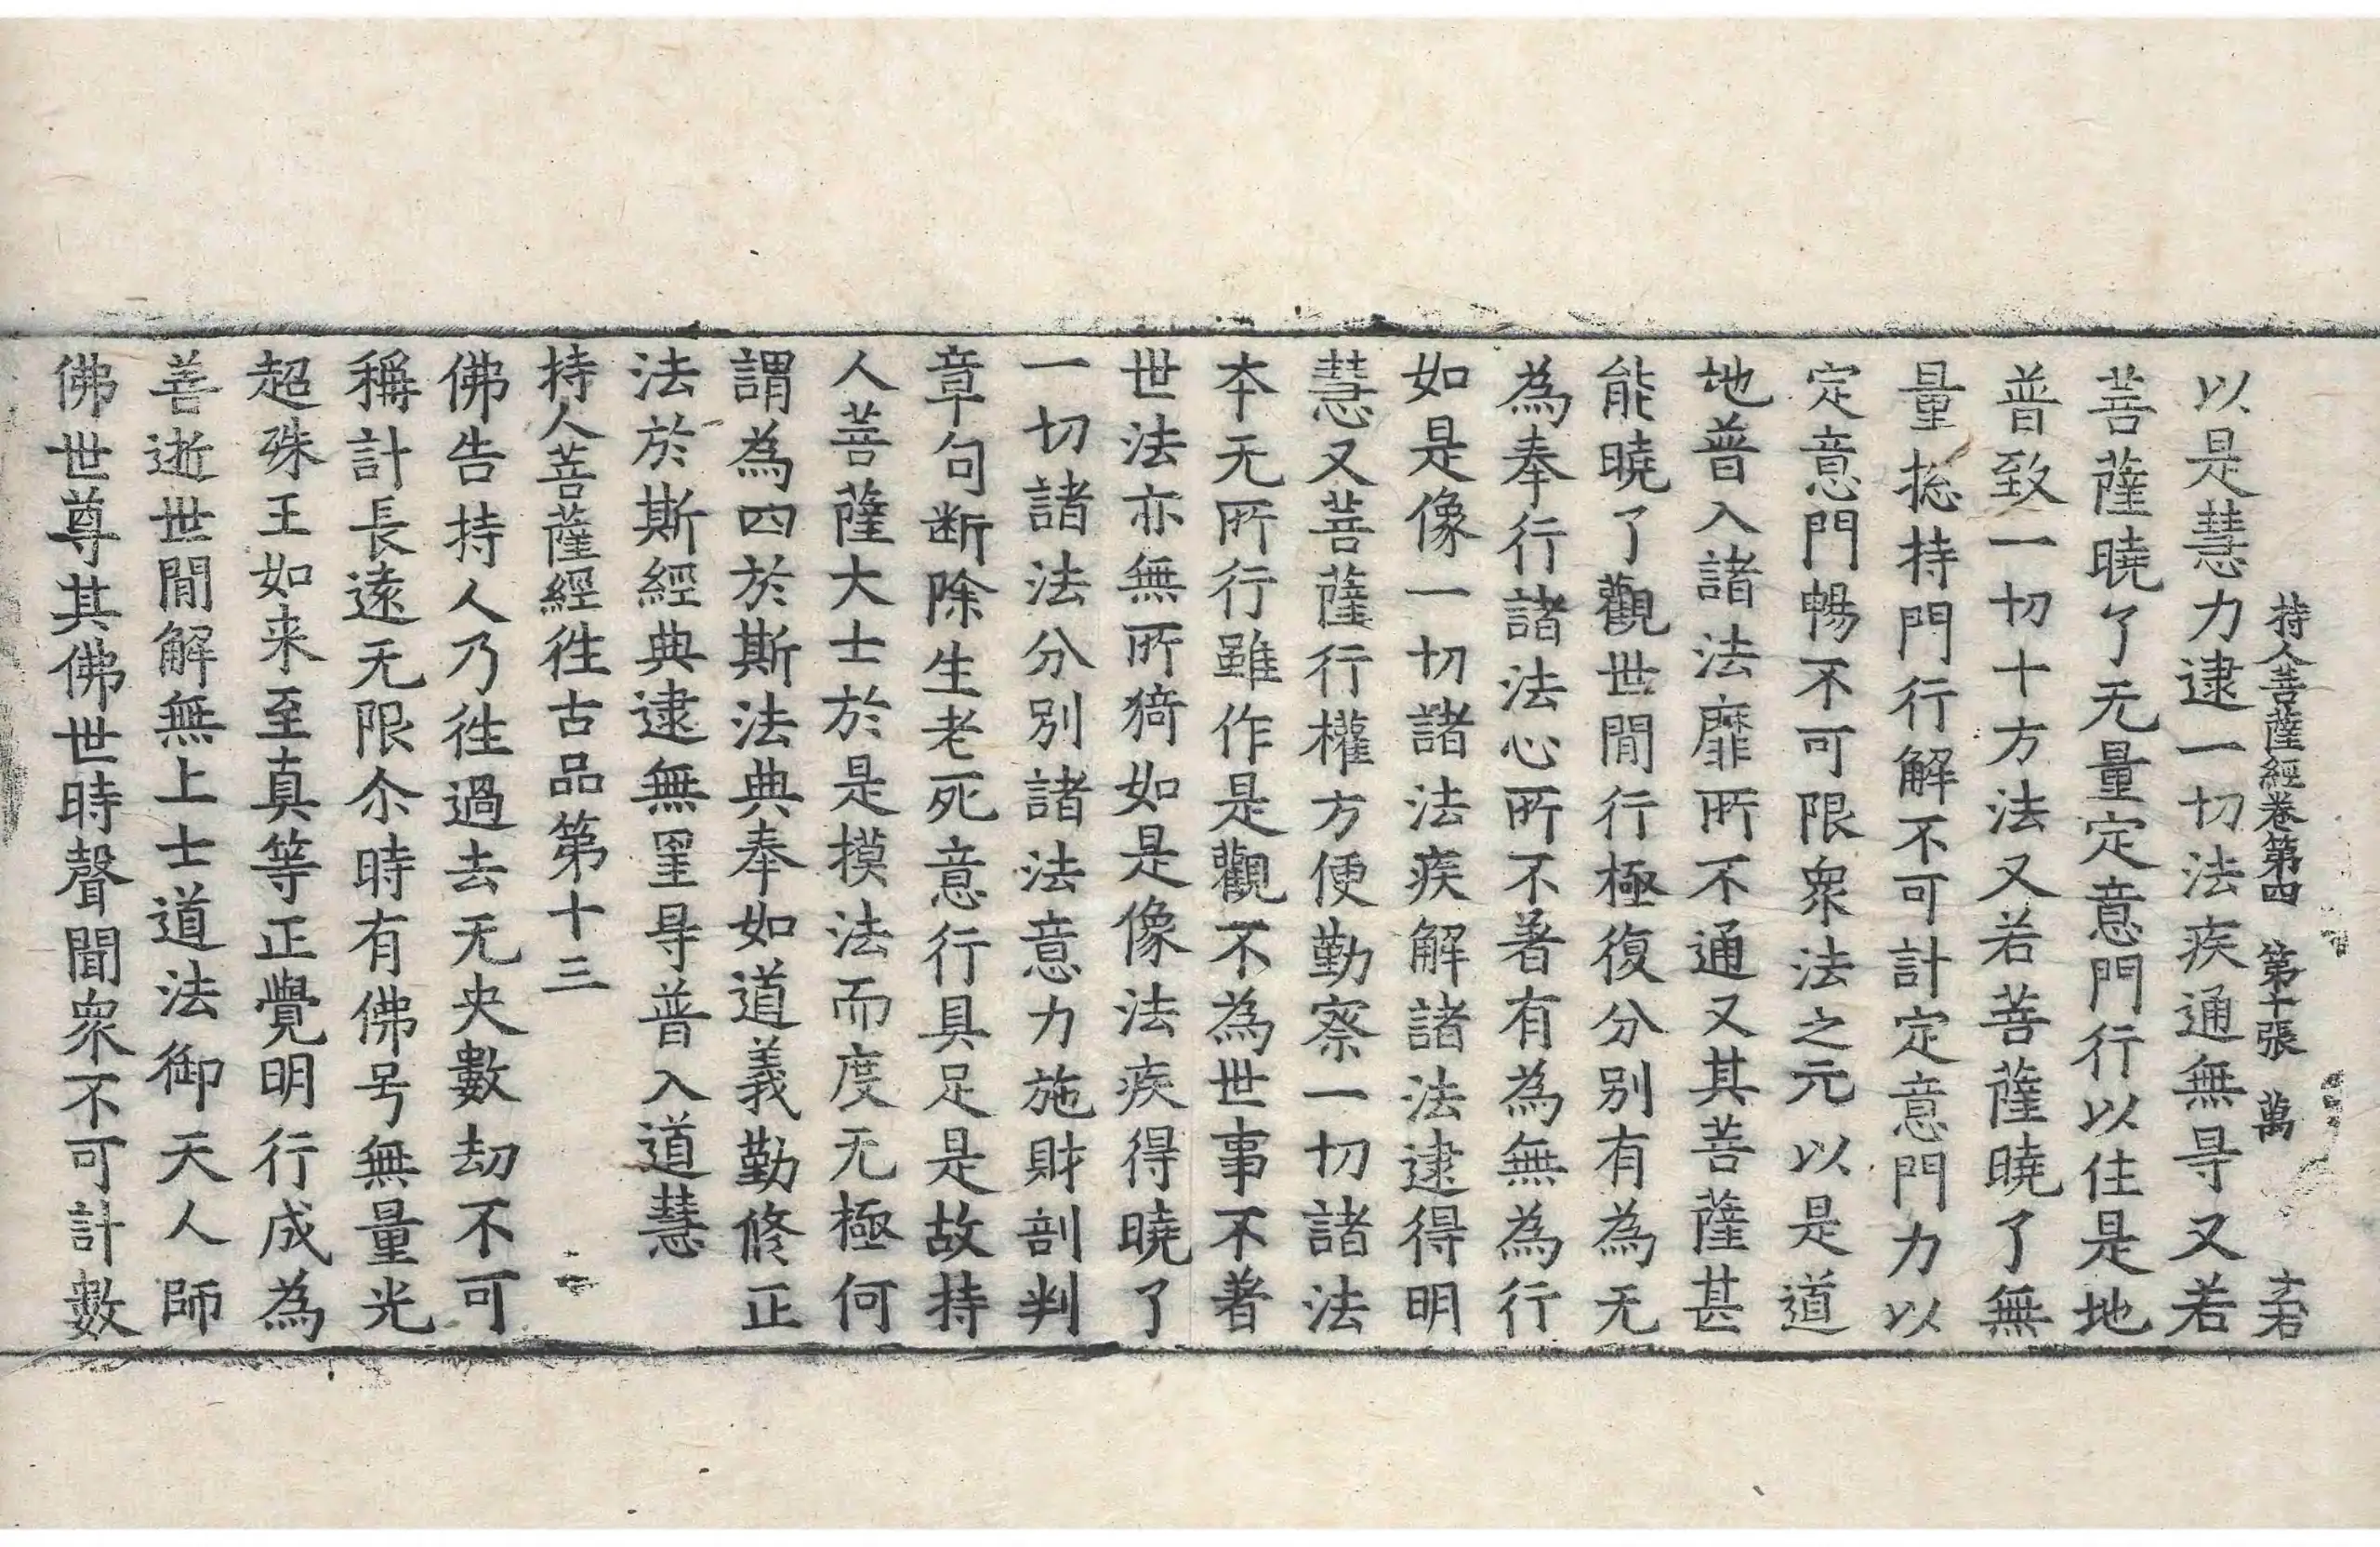 持人菩薩經卷第四 第十張 萬
以是慧力逮一切法疾通無㝵又若
菩薩曉了无量定意門行以住是地
普致一切十方法又若菩薩曉了無
量捴持門行解不可計定意門力以
定意門暢不可限衆法之元以是道
地普入諸法靡所不通又其菩薩甚
能曉了觀世閒行極復分別有為无
為奉行諸法心所不著有為無為行
如是像一切諸法疾解諸法逮得明
慧又菩薩行權方便勤察一切諸法
本无所行雖作是觀不為世事不著
世法亦無所猗如是像法疾得曉了
一切諸法分別諸法意力施財剖判
章句断除生老死意行具足是故持
人菩薩大士於是摸法而度无極何
謂為四於斯法典奉如道義勤修正
法於斯經典逮無罣㝵普入道慧
持人菩薩經徃古品第十三
佛告持人乃徃過去无央數劫不可
稱計長遠无限尒時有佛号無量光
超殊王如来至真等正覺明行成為
善逝世閒解無上士道法御天人師
佛世尊其佛世時聲聞衆不可計數